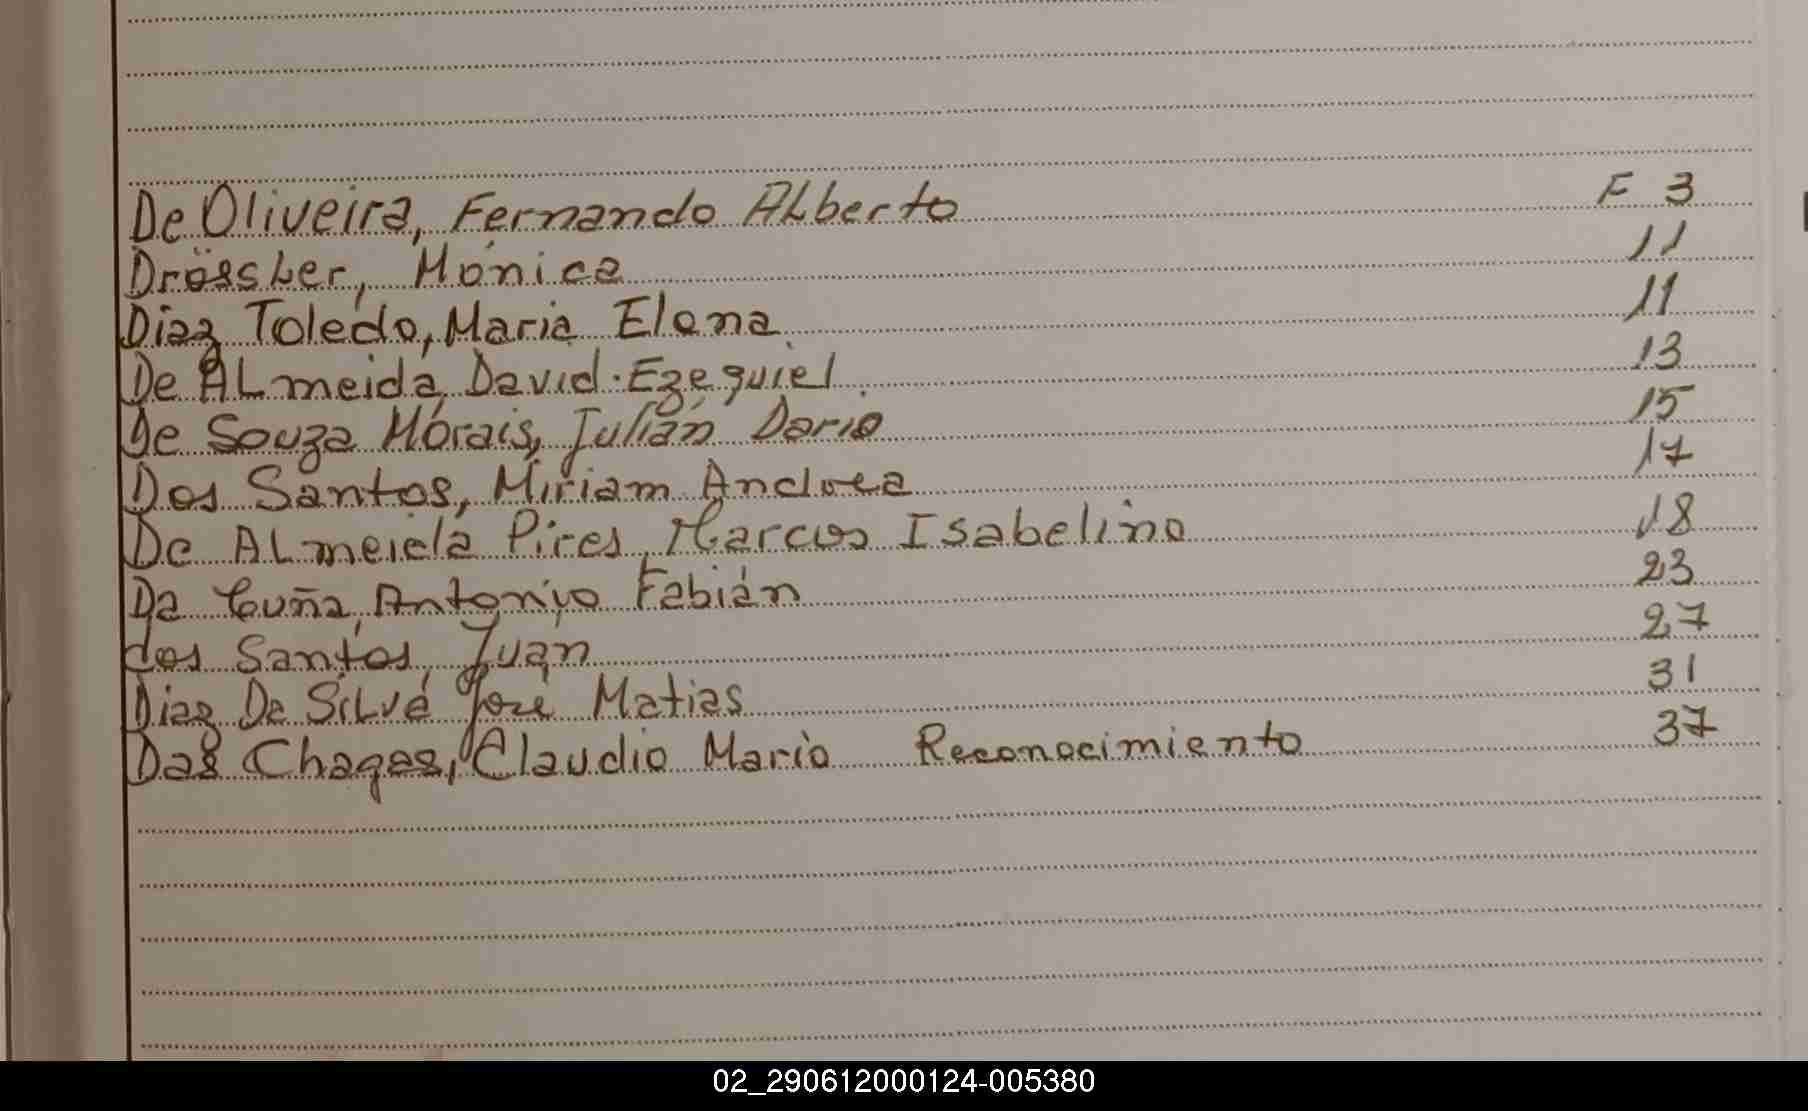 De Oliveira, Fernando Alberto F 3
Drössler, Mónica 11
Diaz Toledo, Maria Elena 11
De Almeida, David Ezequiel 13
De Souza Morais, Julián Dario 15
Dos Santos, Miriam Andrea 17
De Almeida Pires, Marcos Isabelino 18
Da Cuña, Antonio Fabián 23
dos Santos, Juan 27
Diaz Da Silva José Matias 31
Das Chagas, Claudio Mario Reconocimiento 37
02_290612000124-005380